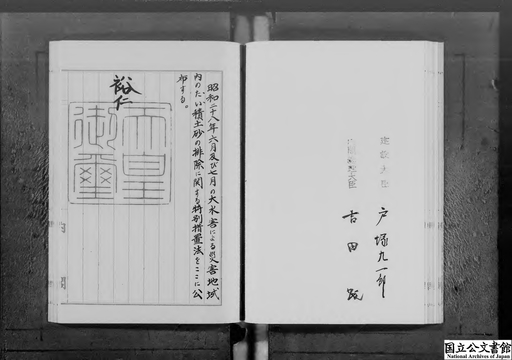 建設大臣 戸塚九一郎
内閣総理大臣 吉田茂
昭和二十八年六月及び七月の大水害による災害地域
内のたい積土砂の排除に関する特別措置法をここに公
布する。
裕仁
天皇
御璽
国立公文書館
National Archives of Japan